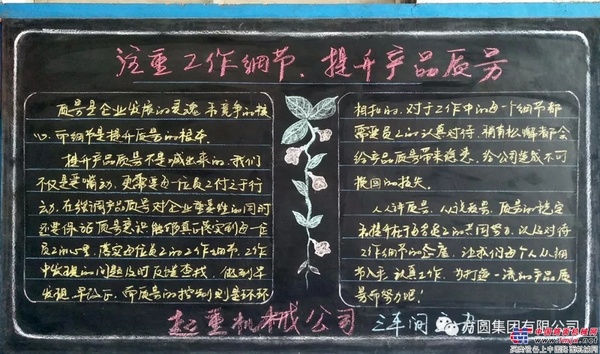 注重工作细节、提升产品质量
质量是企业发展的灵魂和竞争的核
心。而细节是提升质量的根本。
提升产品质量不是喊出来的，我们
不仅是要嘴动，更需要每位员工付之于行
动。在强调产品质量对企业重要性的同时
还要保证质量意识能够真正落实到每一位
员工的心里，落实每位员工的工作细节，工作
中发现的问题及时反馈查找，做到早
发现，早改正，而质量的控制则是环环
相扣的，对于工作中的每一个细节都
需要员工的认真对待，稍有松懈都会
给产品质量带来隐患，给公司造成不可
挽回的损失。
人人讲质量，人人说质量，质量的稳定
与提升在于各员工的共同努力，以及对待
工作细节的态度，让我们每个人从细
节入手，认真工作，为打造一流的产品质
量而努力吧！
起重机械公司
三车间
方圆集团有限公司
中国路面机械网
买卖设备上中国路面机械网